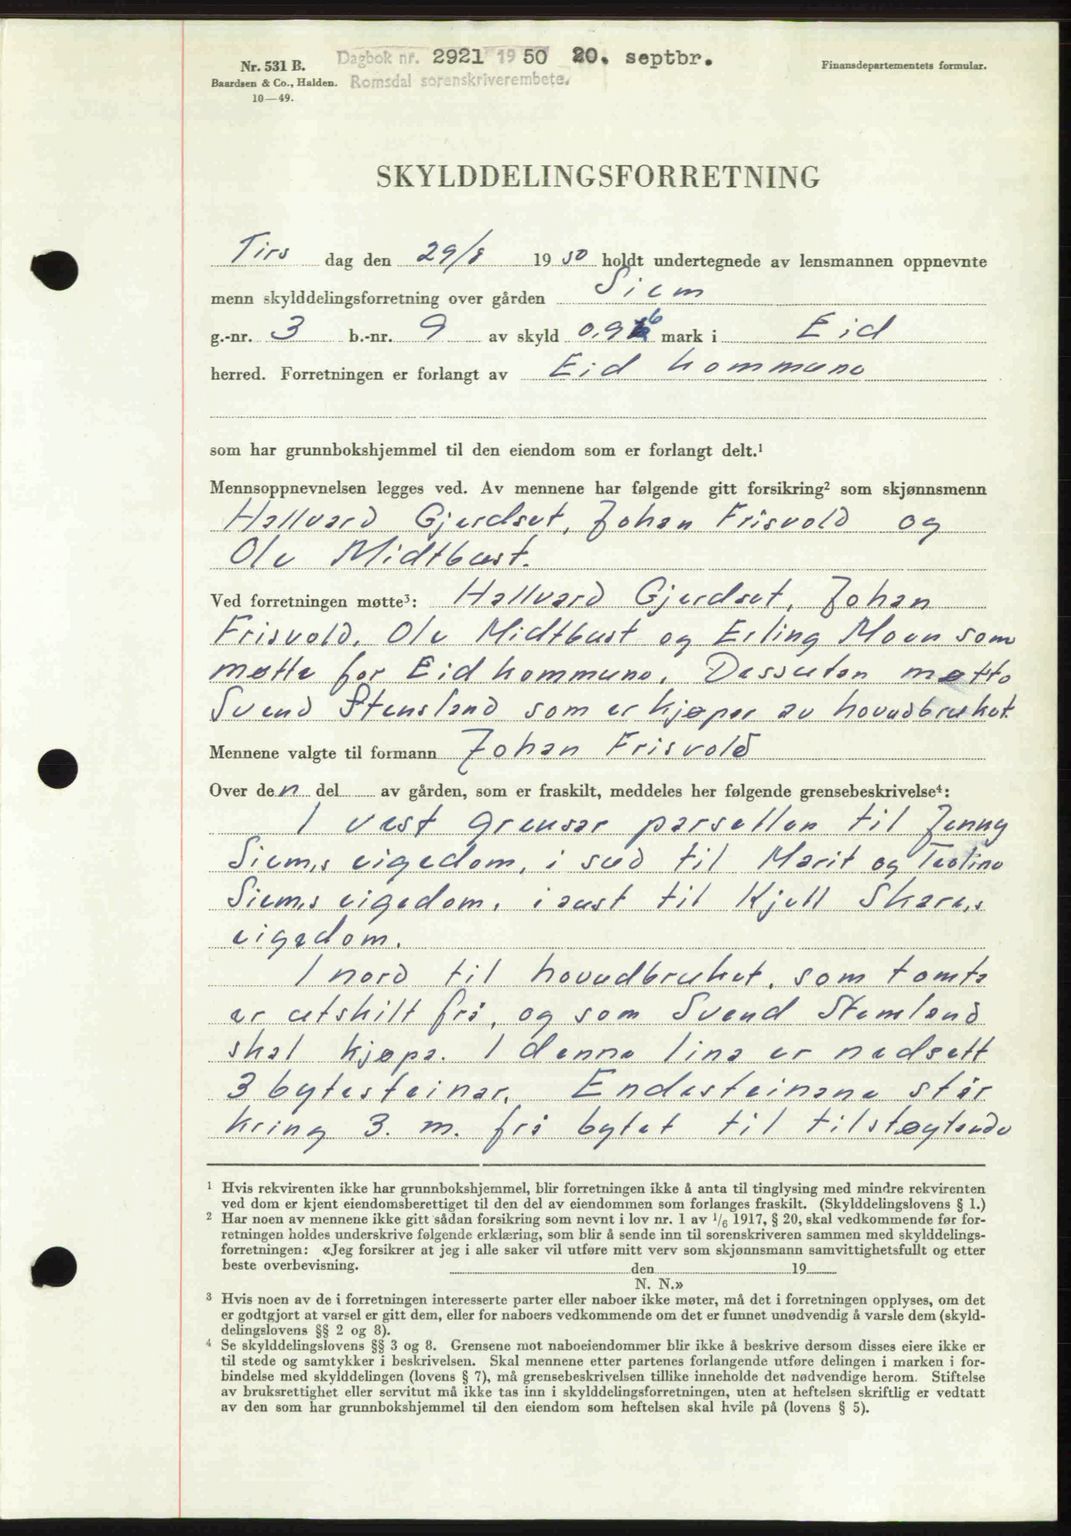 Nr. 531 B.
Baardsen & Co., Halden.
10—49.
Dagbok nr. 2921 19 50 20. septbr.
Romsdal sorenskriverembete.
Finansdepartementets formular.
SKYLDDELINGSFORRETNING
Tirs dag den 29/8 19 50 holdt undertegnede av lensmannen oppnevnte
menn skylddelingsforretning over gården Siem
g.-nr. 3 b.-nr. 9 av skyld 0,96 mark i Eid
herred. Forretningen er forlangt av Eid kommune
som har grunnbokshjemmel til den eiendom som er forlangt delt.¹
Mennsoppnevnelsen legges ved. Av mennene har følgende gitt forsikring² som skjønnsmenn
Hallvard Gjerdset, Johan Frisvold og
Ole Midtbust.
Ved forretningen møtte³: Hallvard Gjerdset, Johan
Frisvold, Ole Midtbust og Erling Moen som
møtte for Eid kommune. Dessuten møtte
Svend Stensland som er kjøper av hovudbruket.
Mennene valgte til formann Johan Frisvold
Over den del av gården, som er fraskilt, meddeles her følgende grensebeskrivelse⁴:
I vest grensar parsellen til Jenny
Siem,s eigedom, i sud til Marit og Teoline
Siem,s eigedom, i aust til Kjell Skare,s
eigedom.
I nord til hovudbruket, som tomta
er utskilt frå, og som Svend Stensland
skal kjøpa. I denne lina er nedsett
3 bytesteinar. Endesteinane står
kring 3. m. frå bytet til tilstøytende
¹ Hvis rekvirenten ikke har grunnbokshjemmel, blir forretningen ikke å anta til tinglysing med mindre rekvirenten
ved dom er kjent eiendomsberettiget til den del av eiendommen som forlanges fraskilt. (Skylddelingslovens § 1.)
² Har noen av mennene ikke gitt sådan forsikring som nevnt i lov nr. 1 av 1/6 1917, § 20, skal vedkommende før for-
retningen holdes underskrive følgende erklæring, som blir å sende inn til sorenskriveren sammen med skylddelings-
forretningen: «Jeg forsikrer at jeg i alle saker vil utføre mitt verv som skjønnsmann samvittighetsfullt og etter
beste overbevisning. den 19
N. N.»
³ Hvis noen av de i forretningen interesserte parter eller naboer ikke møter, må det i forretningen opplyses, om det
er godtgjort at varsel er gitt dem, eller for naboers vedkommende om det er funnet unødvendig å varsle dem (skyld-
delingslovens §§ 2 og 8).
⁴ Se skylddelingslovens §§ 3 og 8. Grensene mot naboeiendommer blir ikke å beskrive dersom disses eiere ikke er
til stede og samtykker i beskrivelsen. Skal mennene etter partenes forlangende utføre delingen i marken i for-
bindelse med skylddelingen (lovens § 7), må grensebeskrivelsen tillike inneholde det nødvendige herom. Stiftelse
av bruksrettighet eller servitut må ikke tas inn i skylddelingsforretningen, uten at heftelsen skriftlig er vedtatt
av den som har grunnbokshjemmel til den eiendom som heftelsen skal hvile på (lovens § 5).